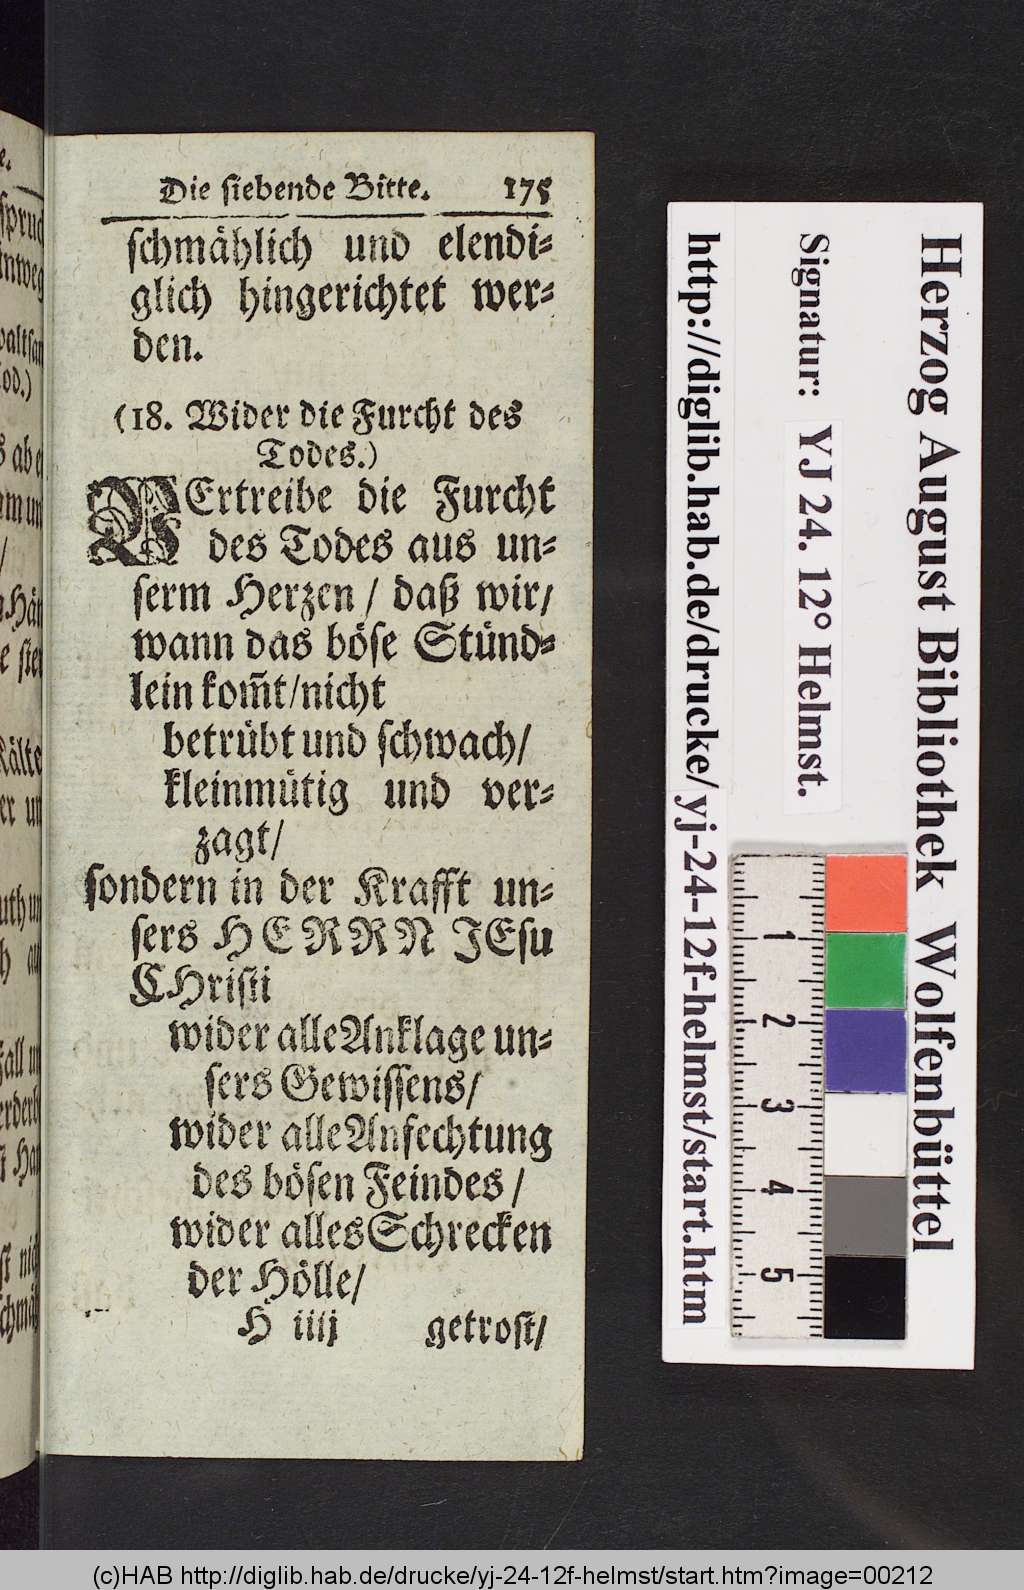 Die siebende Bitte. 175
schmählich und elendi⸗
glich hingerichtet wer⸗
den.
(18. Wider die Furcht des
Todes.)
VErtreibe die Furcht
des Todes aus un⸗
serm Herzen / daß wir/
wann das böse Stünd⸗
lein kom̃t/nicht
betrübt und schwach/
kleinmütig und ver⸗
zagt/
sondern in der Krafft un⸗
sers HERRN JEsu
CHristi
wider alle Anklage un⸗
sers Gewissens/
wider alle Anfechtung
des bösen Feindes /
wider alles Schrecken
der Hölle/
H iiij getrost/
Herzog August Bibliothek Wolfenbüttel
Signatur: YJ 24. 12° Helmst.
http://diglib.hab.de/drucke/yj-24-12f-helmst/start.htm
1
2
3
4
5
(c)HAB http://diglib.hab.de/drucke/yj-24-12f-helmst/start.htm?image=00212